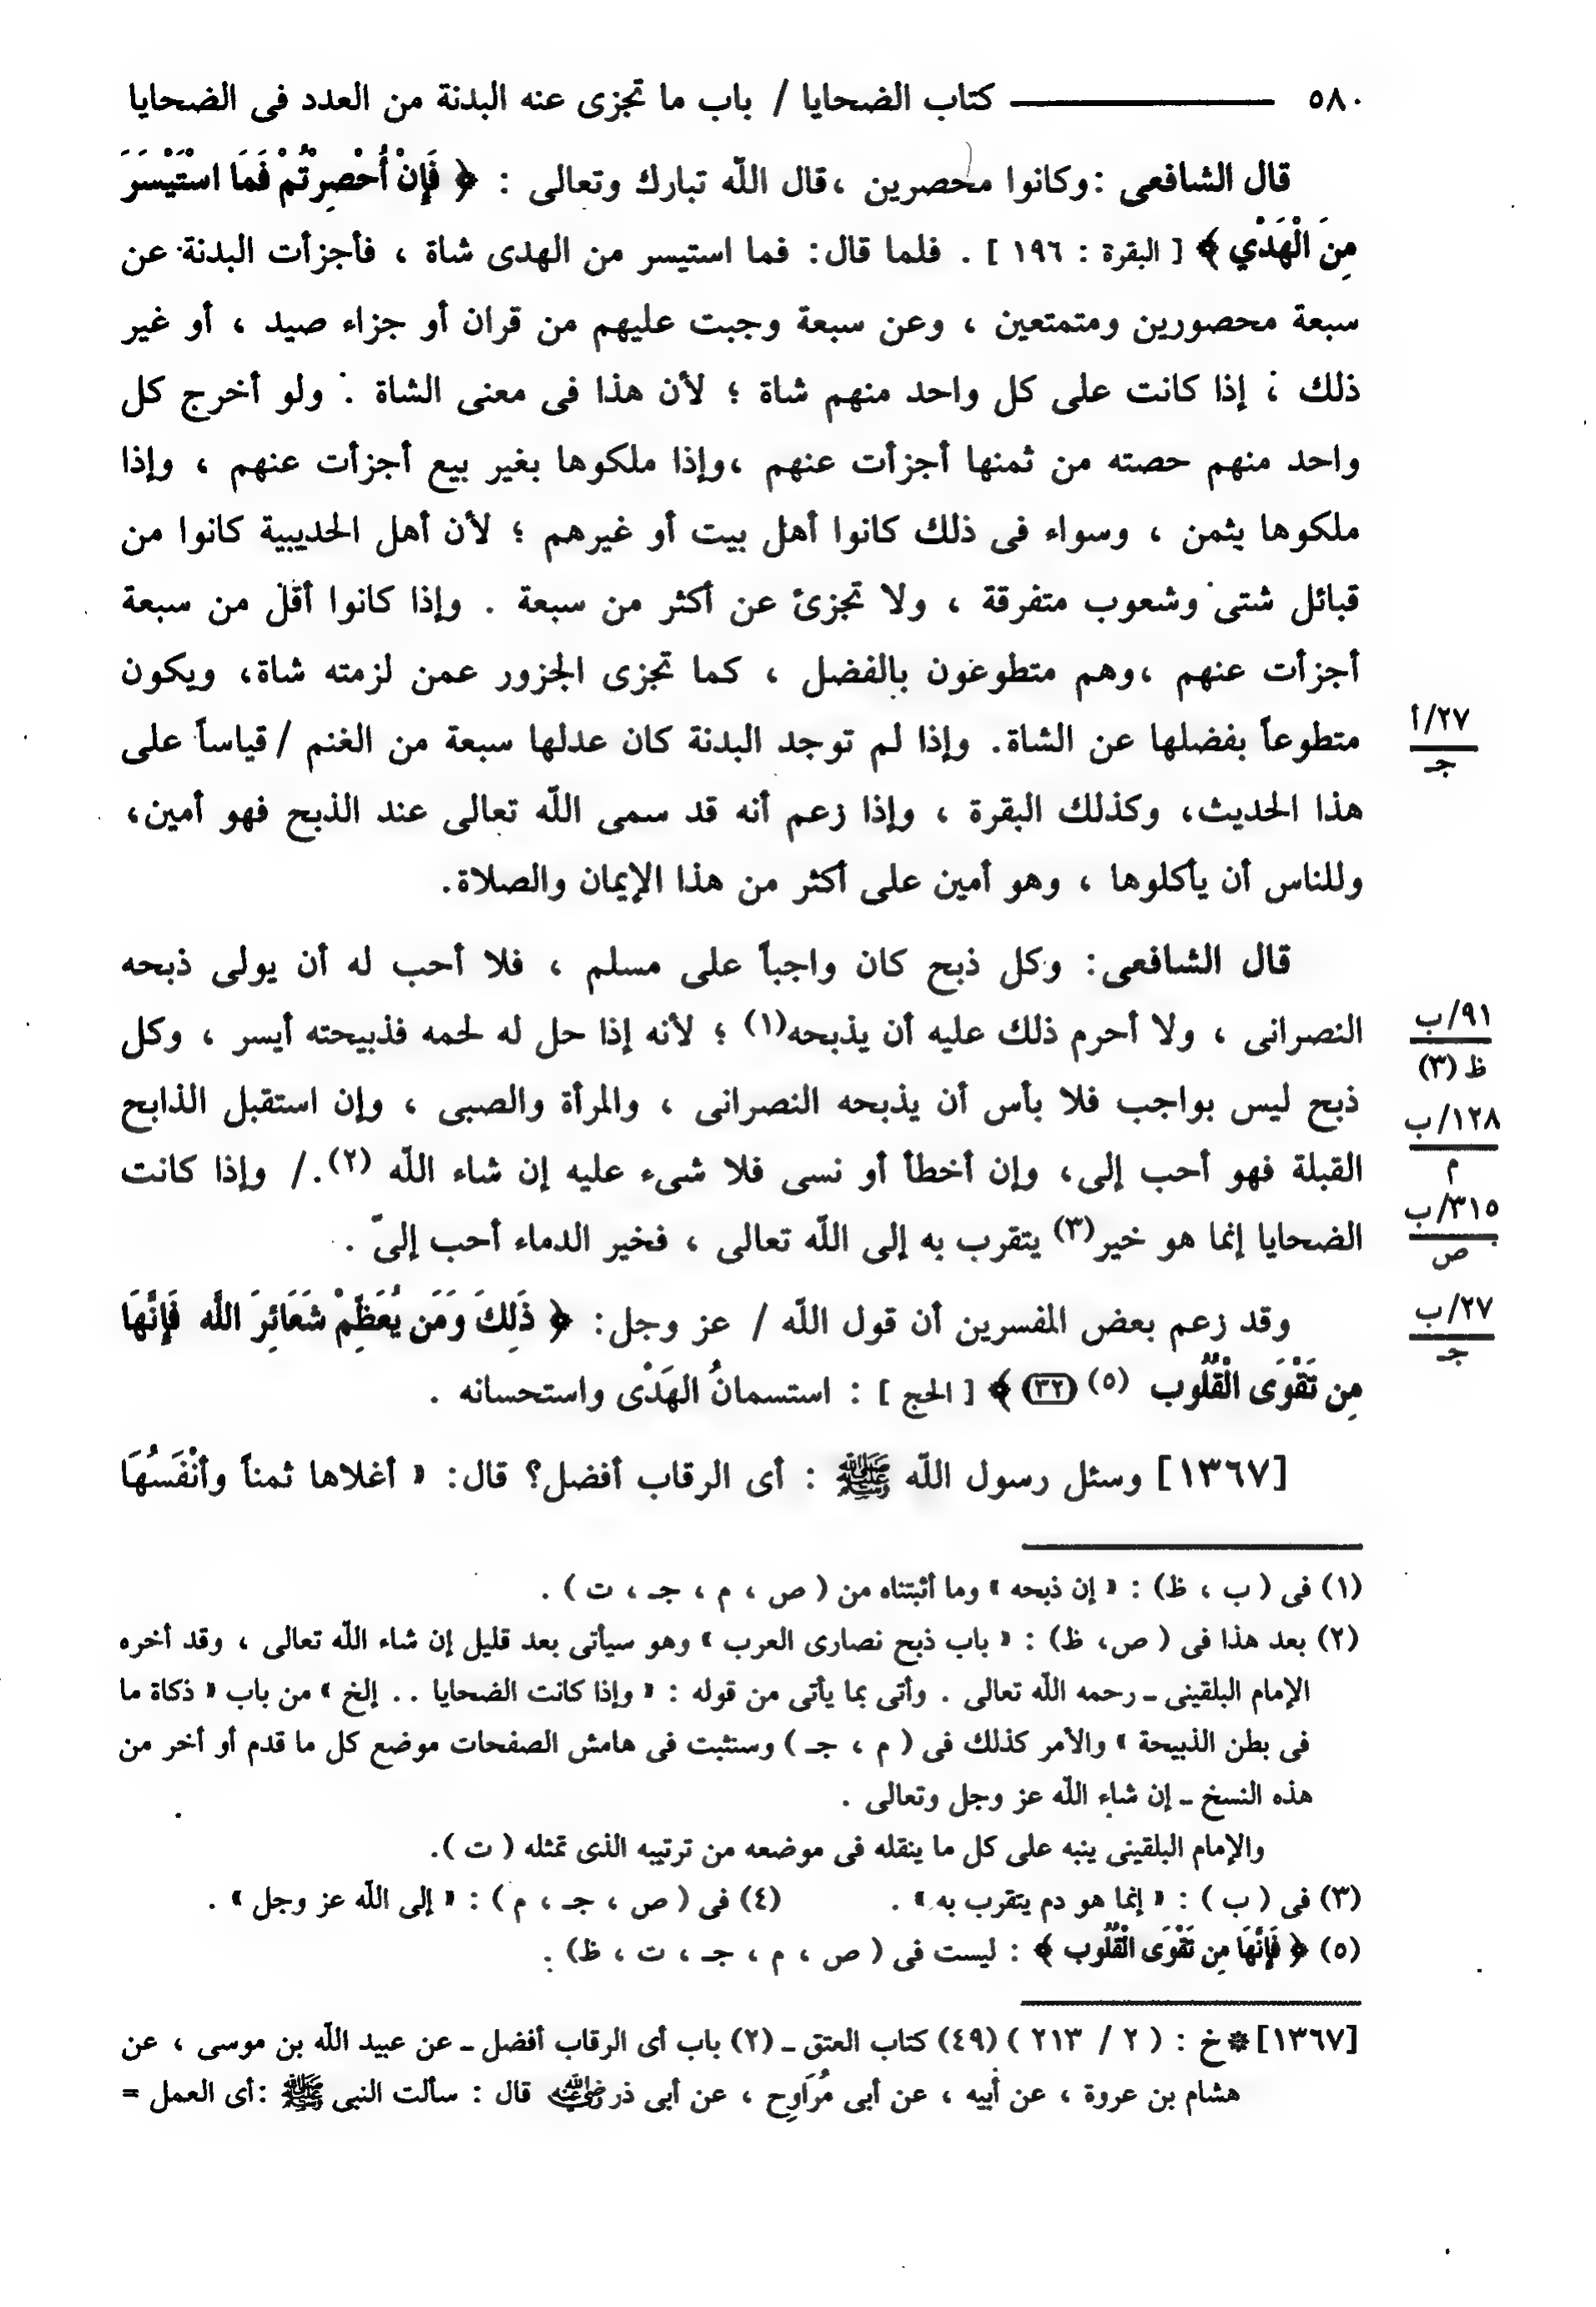 ٥٨٠ ــــــــــ كتاب الضحايا / باب ما تجزى عنه البدنة من العدد فى الضحايا
قال الشافعى : وكانوا محصرين ، قال الله تبارك وتعالى : ﴿ فَإِنْ أُحْصِرْتُمْ فَمَا اسْتَيْسَرَ
مِنَ الْهَدْيِ ﴾ [ البقرة : ١٩٦ ] . فلما قال: فما استيسر من الهدى شاة ، فأجزأت البدنة عن
سبعة محصورين ومتمتعين ، وعن سبعة وجبت عليهم من قران أو جزاء صيد ، أو غير
ذلك ؛ إذا كانت على كل واحد منهم شاة ؛ لأن هذا فى معنى الشاة . ولو أخرج كل
واحد منهم حصته من ثمنها أجزأت عنهم ،وإذا ملكوها بغير بيع أجزأت عنهم ، وإذا
ملكوها بثمن ، وسواء فى ذلك كانوا أهل بيت أو غيرهم ؛ لأن أهل الحديبية كانوا من
قبائل شتى وشعوب متفرقة ، ولا تجزئ عن أكثر من سبعة . وإذا كانوا أقل من سبعة
أجزأت عنهم ،وهم متطوعون بالفضل ، كما تجزى الجزور عمن لزمته شاة، ويكون
متطوعاً بفضلها عن الشاة. وإذا لم توجد البدنة كان عدلها سبعة من الغنم / قياساً على
٢٧/أ
جـ
هذا الحديث، وكذلك البقرة ، وإذا زعم أنه قد سمى الله تعالى عند الذبح فهو أمين،
وللناس أن يأكلوها ، وهو أمين على أكثر من هذا الإيمان والصلاة.
قال الشافعى: وكل ذبح كان واجباً على مسلم ، فلا أحب له أن يولى ذبحه
النصرانى ، ولا أحرم ذلك عليه أن يذبحه(١) ؛ لأنه إذا حل له لحمه فذبيحته أيسر ، وكل
٩١/ب
ظ (٣)
ذبح ليس بواجب فلا بأس أن يذبحه النصرانى ، والمرأة والصبى ، وإن استقبل الذابح
١٢٨/ب
م
القبلة فهو أحب إلى، وإن أخطأ أو نسى فلا شىء عليه إن شاء الله (٢)./ وإذا كانت
٣١٥/ب
ص
الضحايا إنما هو خير(٣) يتقرب به إلى الله تعالى ، فخير الدماء أحب إلىّ .
وقد زعم بعض المفسرين أن قول الله / عز وجل: ﴿ ذَلِكَ وَمَن يُعَظِّمْ شَعَائِرَ اللَّه فَإِنَّهَا
٢٧/ب
جـ
مِن تَقْوَى الْقُلُوب (٥) (٣٢) ﴾ [ الحج ] : استسمانُ الهَدْى واستحسانه .
[١٣٦٧] وسئل رسول الله ﷺ : أى الرقاب أفضل؟ قال: « أغلاها ثمناً وأنْفَسُهَا
(١) فى ( ب ، ظ) : « إن ذبحه » وما أثبتناه من ( ص ، م ، جـ ، ت ) .
(٢) بعد هذا فى ( ص، ظ) : « باب ذبح نصارى العرب » وهو سيأتى بعد قليل إن شاء الله تعالى ، وقد أخره
الإمام البلقينى ـ رحمه الله تعالى . وأتى بما يأتى من قوله : « وإذا كانت الضحايا .. إلخ » من باب « ذكاة ما
فى بطن الذبيحة » والأمر كذلك فى ( م ، جـ ) وسنثبت فى هامش الصفحات موضع كل ما قدم أو أخر من
هذه النسخ ـ إن شاء الله عز وجل وتعالى .
والإمام البلقينى ينبه على كل ما ينقله فى موضعه من ترتيبه الذى تمثله ( ت ).
(٣) فى ( ب ) : « إنما هو دم يتقرب به » . (٤) فى ( ص ، جـ ، م ) : « إلى الله عز وجل » .
(٥) ﴿ فَإِنَّهَا مِن تَقْوَى الْقُلُوب ﴾ : ليست فى ( ص ، م ، جـ ، ت ، ظ) .
[١٣٦٧]* خ : ( ٢ / ٢١٣ ) (٤٩) كتاب العتق ـ (٢) باب أى الرقاب أفضل ـ عن عبيد الله بن موسى ، عن
هشام بن عروة ، عن أبيه ، عن أبى مُرَاوِح ، عن أبى ذر رضي الله عنه قال : سألت النبى ﷺ :أى العمل =